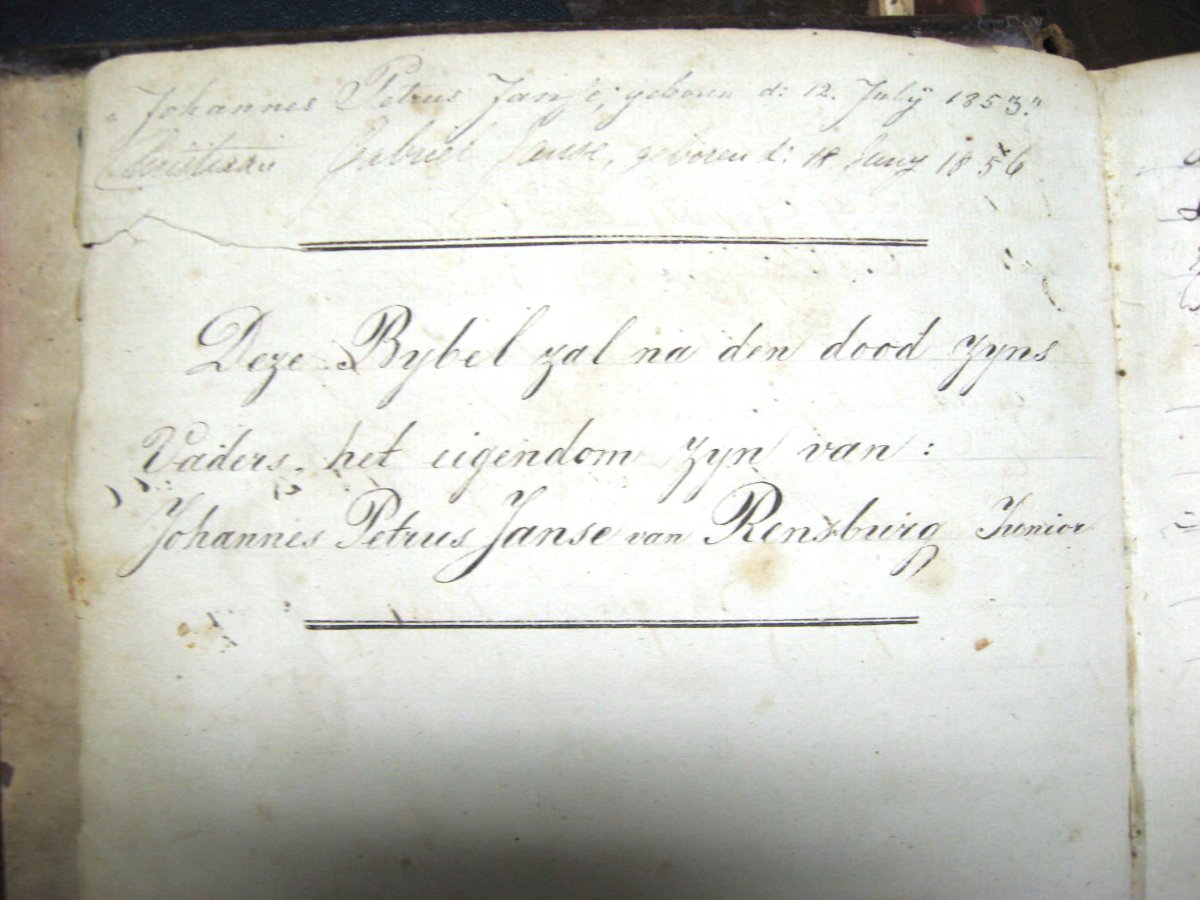 Johannes Petrus Janse, geboren d: 12. Julÿ 1853."
Christiaan Gabriel Janse, geboren d: 18. Juny 1856
Deze Bybel zal na den dood zyns
Vaders. het eigendom zyn van:
Johannes Petrus Janse van Rensburg Junior